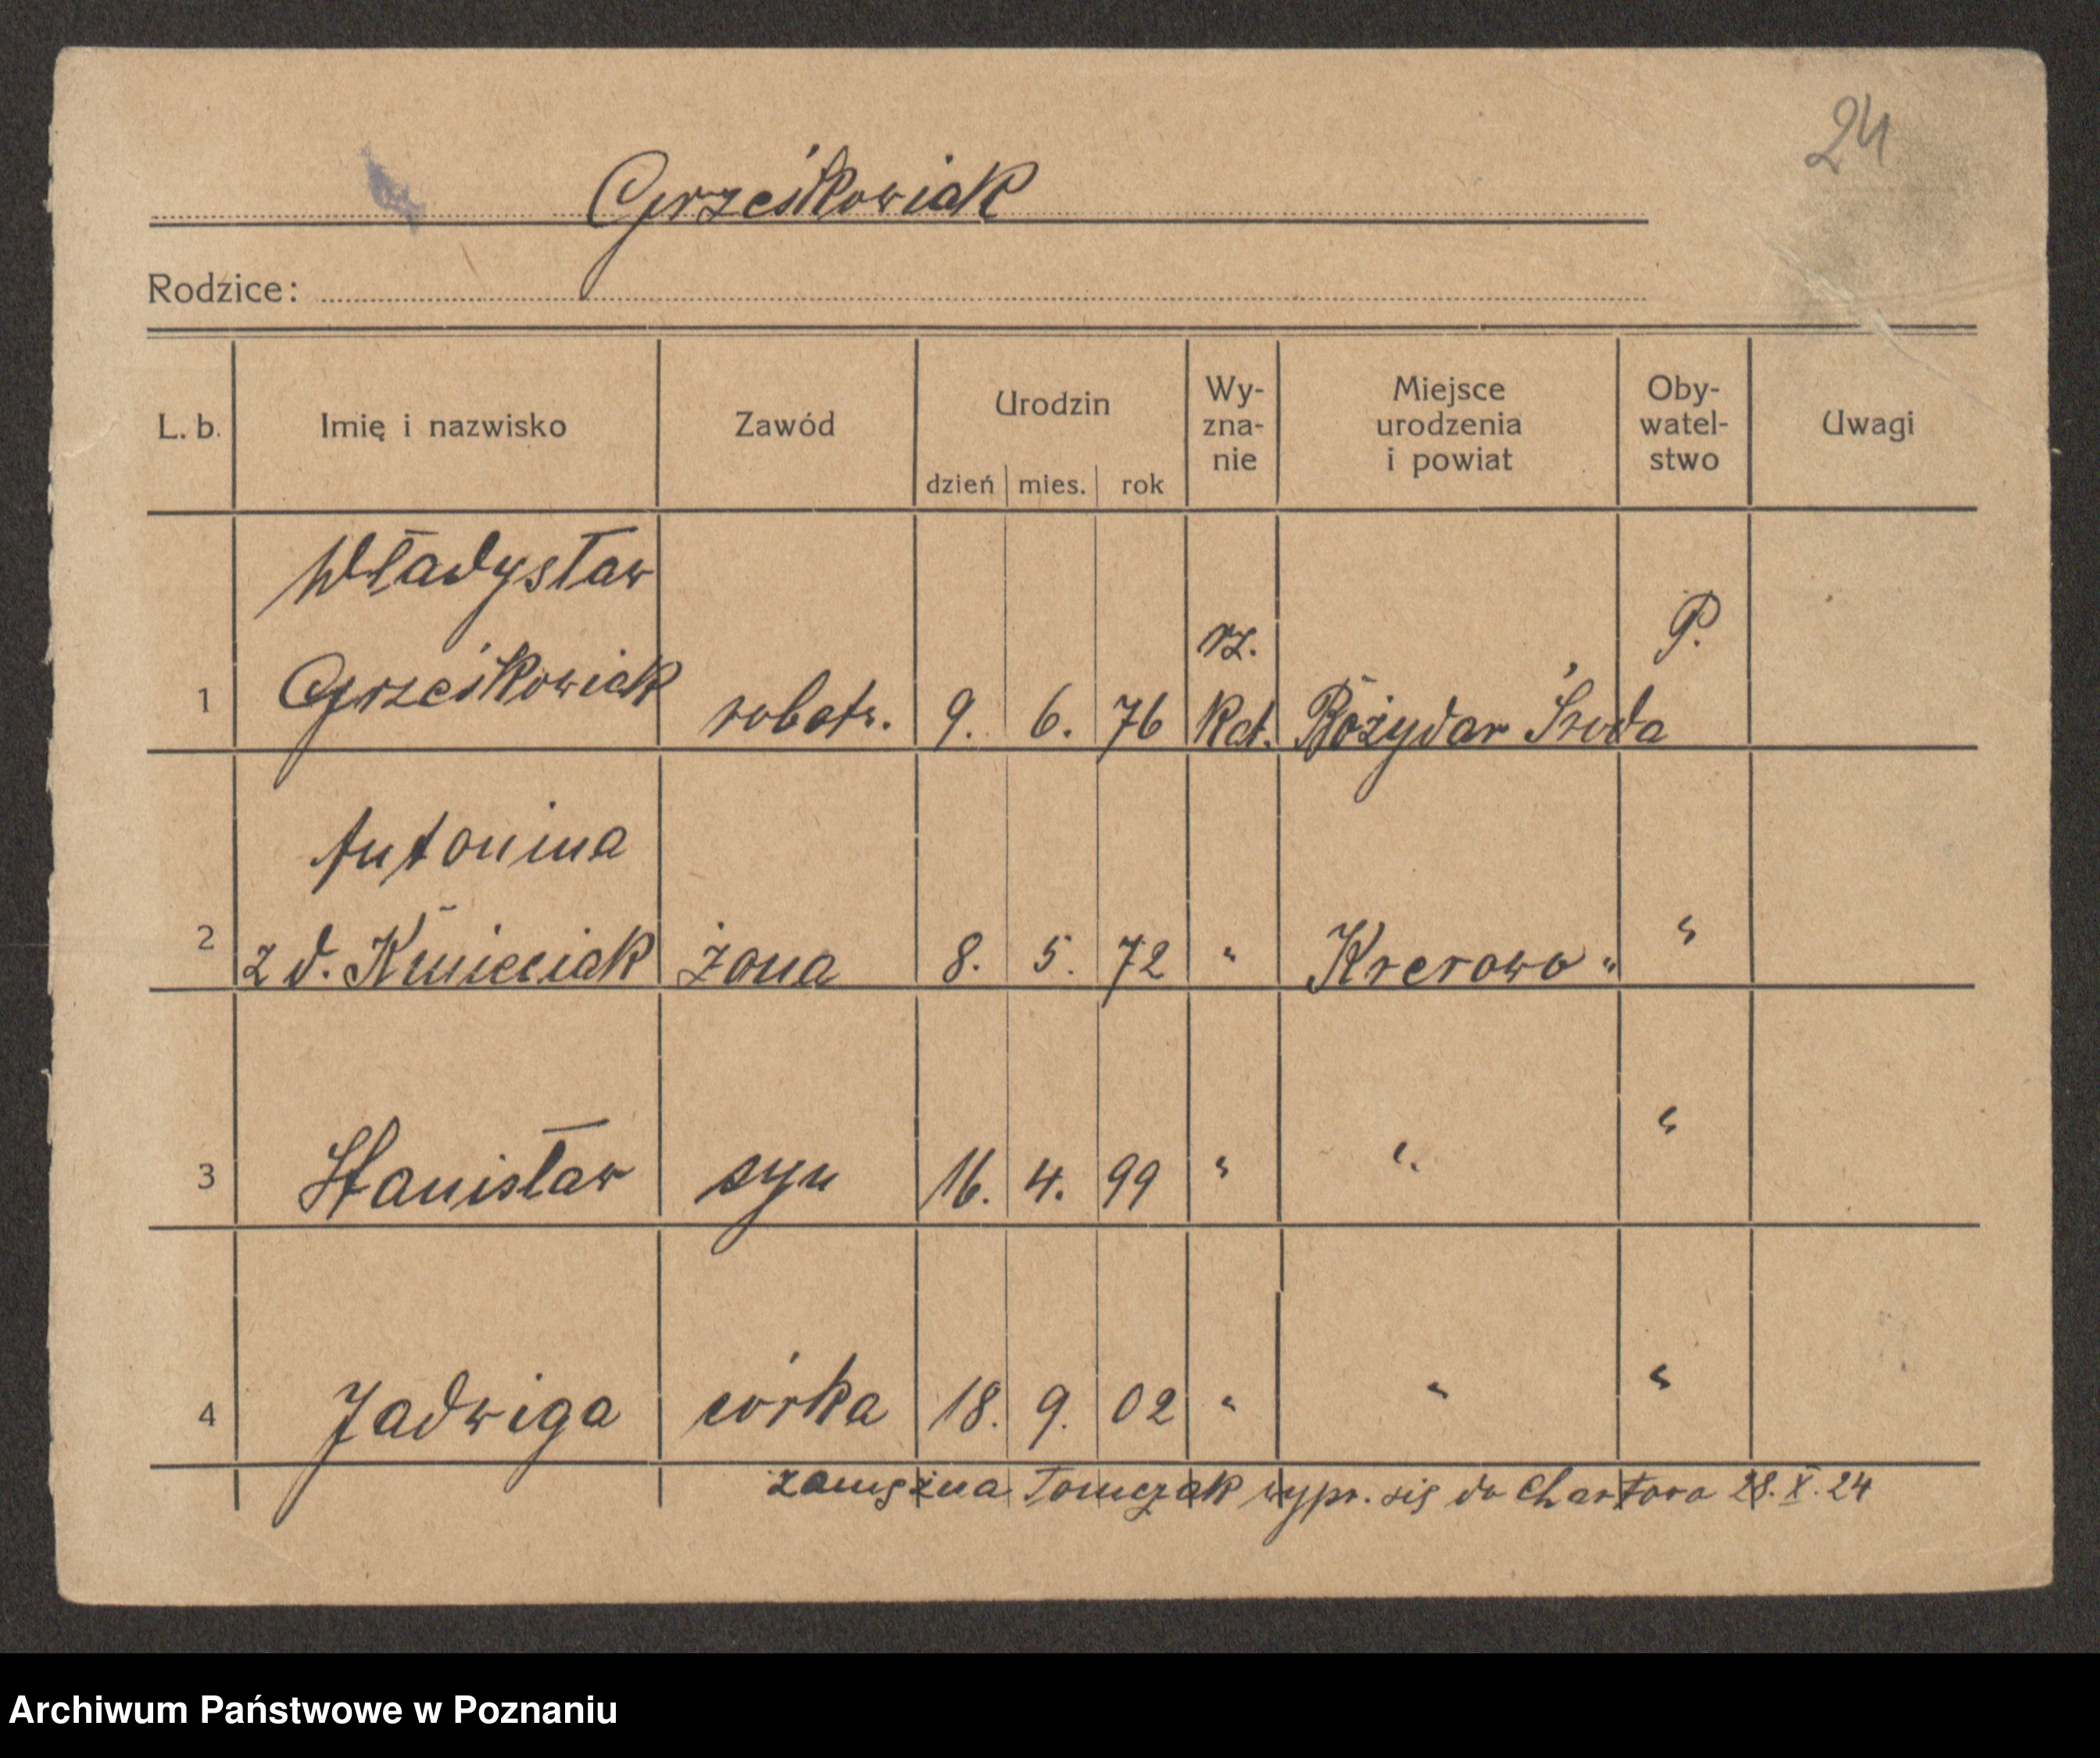 24
Grześkowiak
Rodzice:
L. b. Imię i nazwisko Zawód Urodzin dzień mies. rok Wy-zna-nie Miejsce urodzenia i powiat Oby-watel-stwo Uwagi
Władysław
1 Grześkowiak robotr. 9. 6. 76 rz. Kat. Bożydar Środa P.
Antonina
2 z d. Kmieciak żona 8. 5. 72 " Krerowo " "
3 Stanisław syn 16. 4. 99 " " "
4 Jadwiga córka 18. 9. 02 " " "
zamężna Tomczak wypr. się do Chartowa 28. X. 24
Archiwum Państwowe w Poznaniu